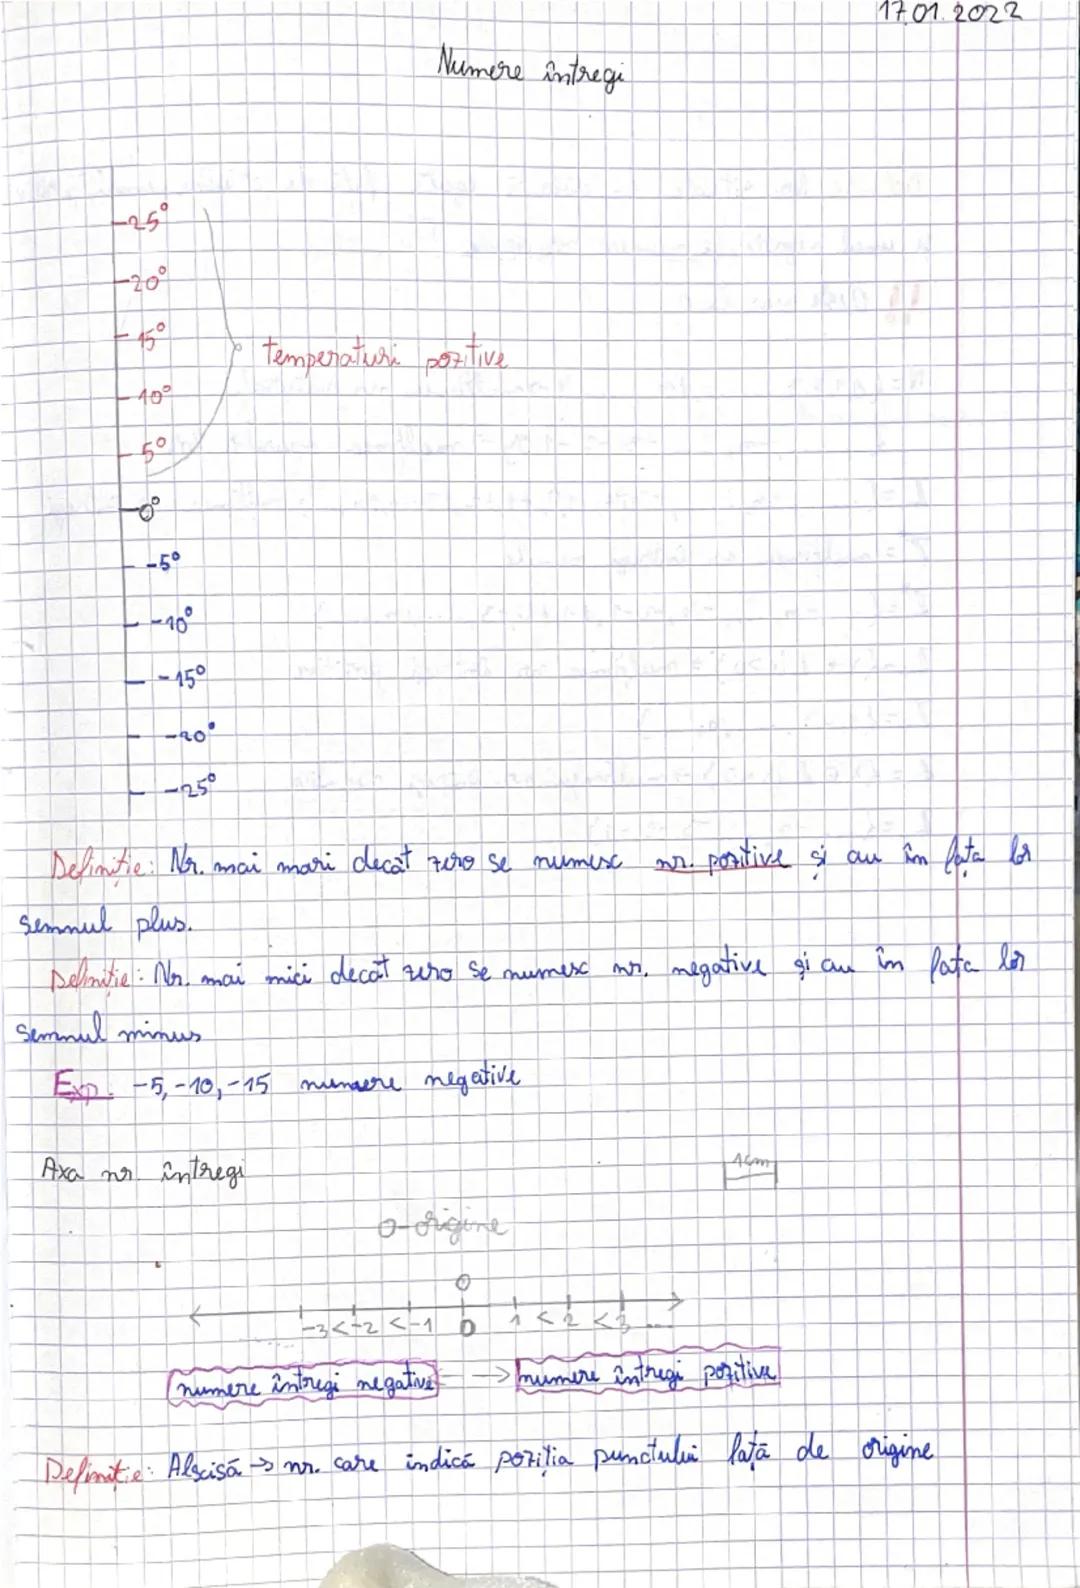 17.01.2022
Numere întregi
25°
20°
15°
temperaturi pozitive
10°
5°
0°
-5°
-10°
-15°
-20°
-25°
Definiție: Nr. mai mari decât zero se numesc nr. pozitive și au în fața lor
semnul plus.
Definiție: Nr. mai mici decât zero se numesc nr. negative și au în fața lor
semnul minus
Exp. -5, -10, -15 numere negative
Axa nr. întregi
1cm
O-origine
O
-3 < -2 < -1 0 1 < 2 < 3 ...
numere întregi negative → numere întregi pozitive
Definiție: Abscisă → nr. care indică poziția punctului față de origine